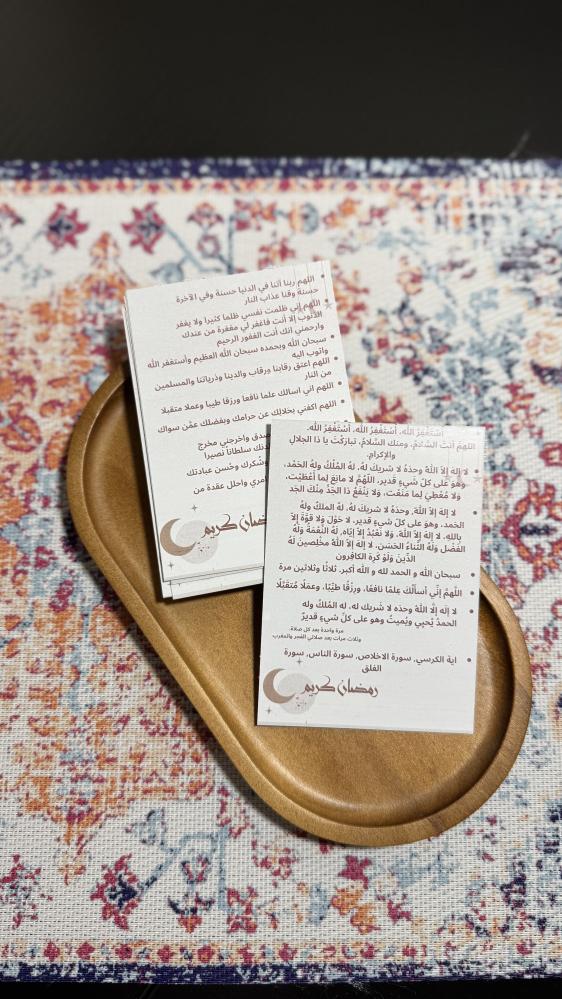 اللهم ربنا آتنا في الدنيا حسنة وفي الآخرة
حسنة وقنا عذاب النار
اللهم إني ظلمت نفسي ظلما كثيرا ولا يغفر
الذنوب إلا أنت فاغفر لي مغفرة من عندك
وارحمني انك أنت الغفور الرحيم
سبحان الله وبحمده سبحان الله العظيم وأستغفر الله
واتوب اليه
اللهم اعتق رقابنا ورقاب والدينا وذرياتنا والمسلمين
من النار
اللهم اني اسالك علما نافعا ورزقا طيبا وعملا متقبلا
اللهم اكفني بحلالك عن حرامك وبفضلك عمّن سواك
صدق واخرجني مخرج
دنك سلطاناً نصيرا
وشُكرك وحُسن عبادتك
أمري واحلل عقدة من
رمضان كريم
أَسْتَغْفِرُ اللَّه، أَسْتَغْفِرُ اللَّه، أَسْتَغْفِرُ اللَّه.
اللهمَّ أنتَ السَّلامُ، ومنكَ السَّلامُ، تباركْتَ يا ذا الجلالِ
والإكرامِ.
لا إلهَ إلاَّ اللهُ وحدَهُ لا شريكَ لهُ، لهُ المُلْكُ ولهُ الحَمْد،
وهوَ على كلّ شَيءٍ قدير، اللَّهُمَّ لا مانِعَ لِما أَعْطَيْت،
وَلا مُعْطِيَ لِما مَنَعْت، وَلا يَنْفَعُ ذا الجَدِّ مِنْكَ الجَد
لا إلهَ إلاَّ اللَّه، وحدَهُ لا شريكَ لهُ، لهُ الملكُ ولهُ
الحَمد، وهوَ على كلّ شيءٍ قدير، لا حَوْلَ وَلا قوَّةَ إلاَّ
بالله، لا إلهَ إلاَّ اللَّه، وَلا نَعْبُدُ إلاَّ إيَّاه، لَهُ النِّعْمَةُ وَلَهُ
الفَضْل وَلَهُ الثَّناءُ الحَسَن، لا إلهَ إلاَّ اللهُ مخْلِصينَ لَهُ
الدِّينَ وَلَوْ كَرِهَ الكافِرون
سبحان الله و الحمد لله و الله أكبر. ثلاثًا وثلاثين مرة
اللَّهُمَّ إنِّي أسألُكَ عِلمًا نافعًا، ورزقًا طيِّبًا، وعملًا متقبَّلًا
لا إلَهَ إلَّا اللَّهُ وحدَه لا شَريكَ له، له المُلكُ وله
الحمدُ يُحيِي ويُميتُ وهو على كلِّ شَيءٍ قديرٌ
مرة واحدة بعد كل صلاة.
وثلاث مرات بعد صلاتي الفجر والمغرب
آية الكرسي, سورة الاخلاص, سورة الناس, سورة
الفلق
رمضان كريم